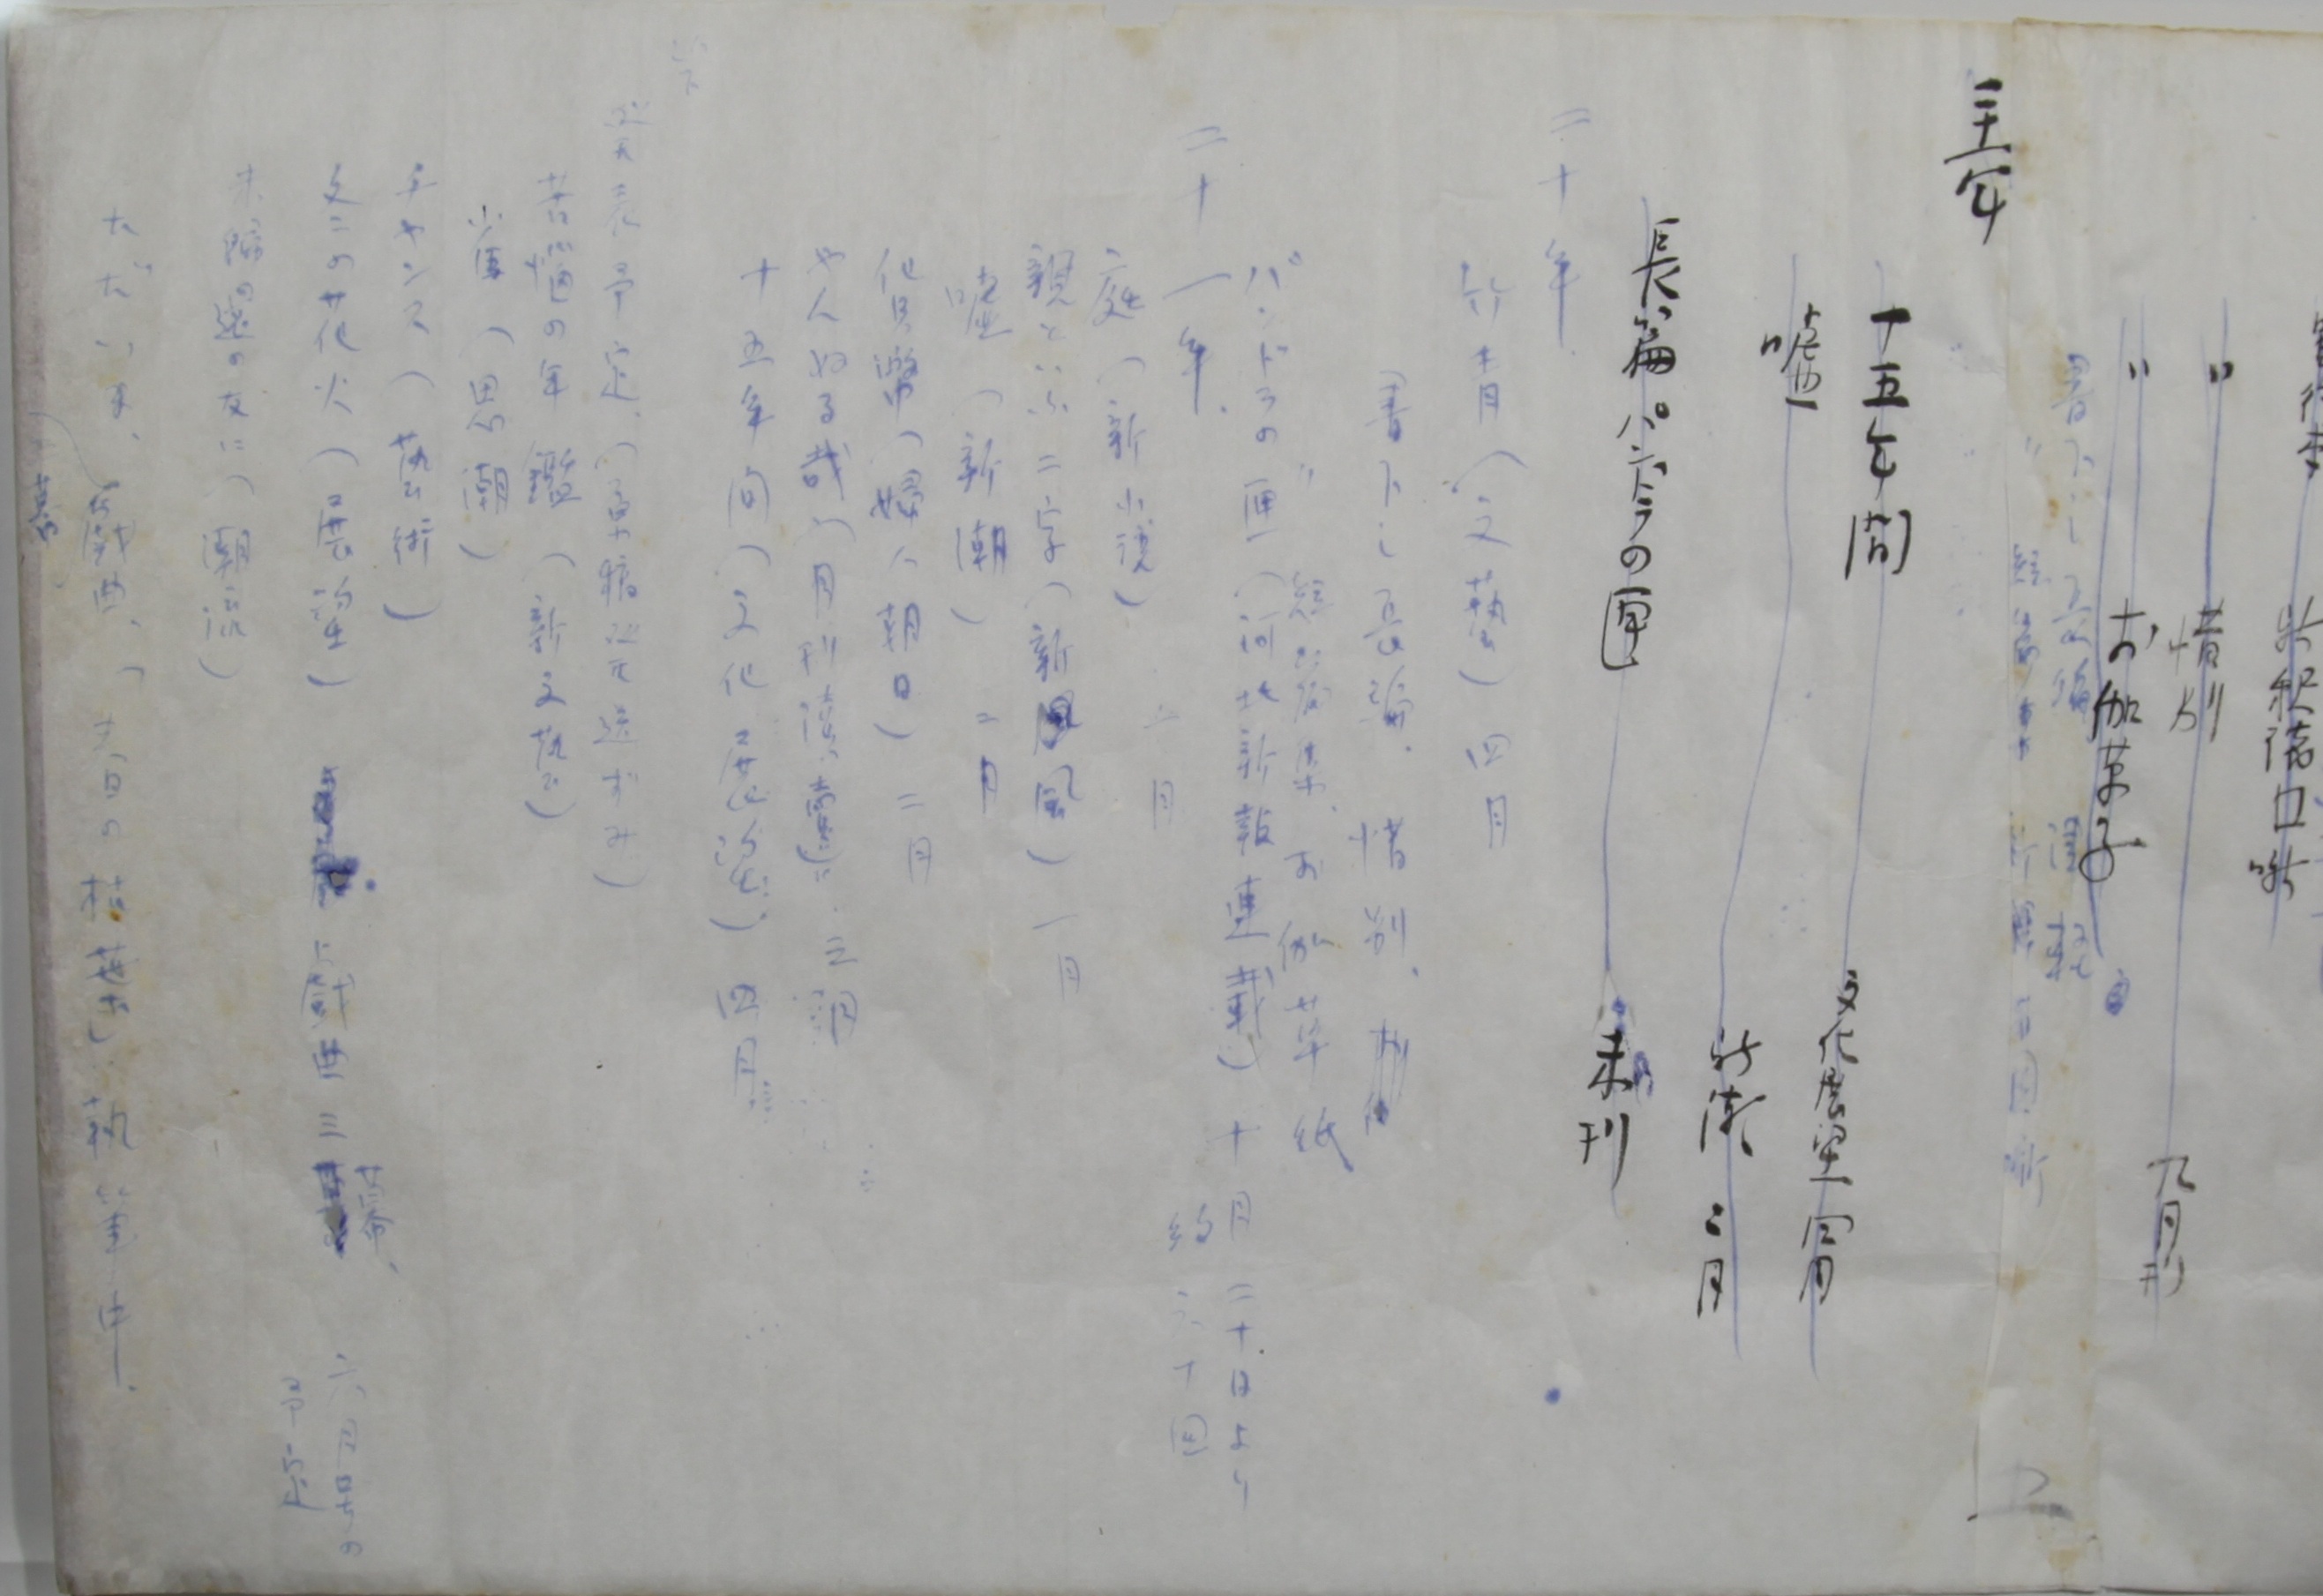 〃 惜別 九月刊
〃 お伽草子
二十一年
十五年間 文化展望 四月
嘘 新潮 二月
長篇パンドラの匣 未刊
二十年
竹青（文藝）四月
書下し長篇、惜別、
お伽草紙
パンドラの匣（河北新報連載）十月二十日より
約六十回
二十一年、
庭（新小説）一月
親といふ二字（新風）一月
嘘（新潮）二月
貨幣（婦人朝日）二月
やんぬる哉（月刊讀賣）三月
十五年間（文化展望）四月
発表予定、（原稿発送ずみ）
苦悩の年鑑（新文藝）
雀（思潮）
チャンス（藝術）
冬の花火（展望）戯曲三幕、六月号の
予定
未帰還の友に（潮流）
ただいま、戯曲、「春の枯葉」執筆中